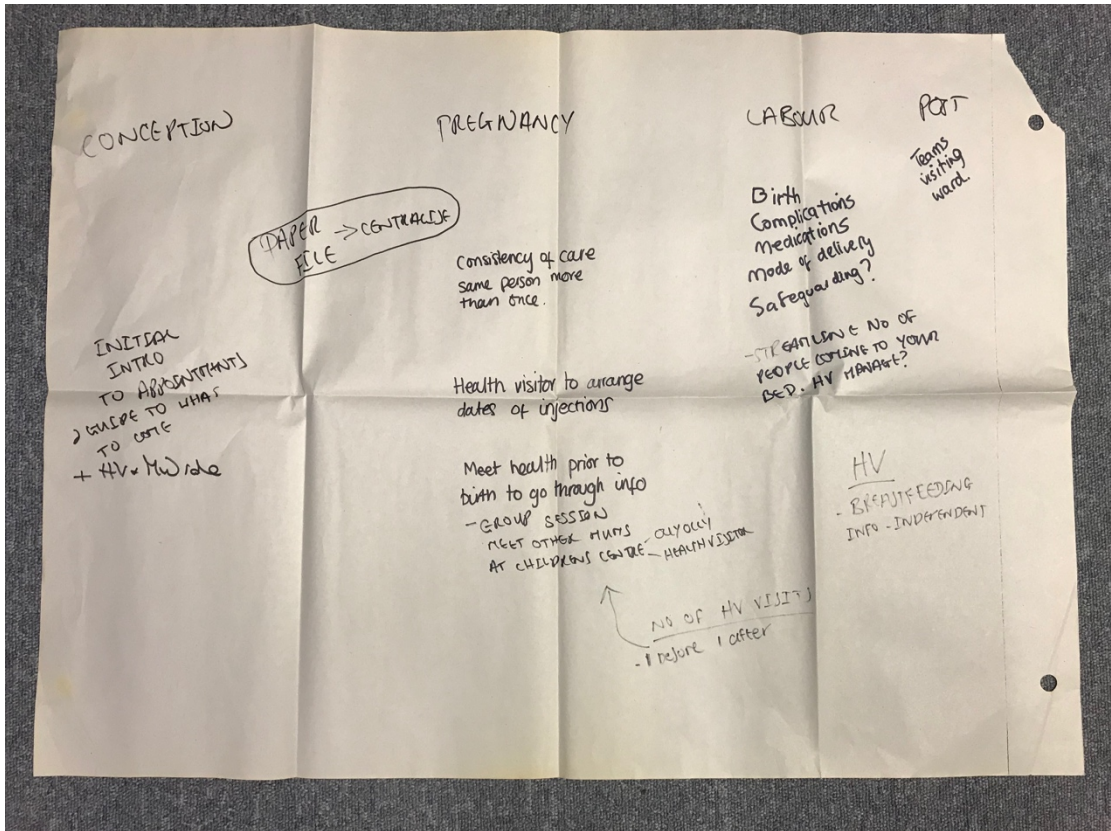 CONCEPTION
PREGNANCY
LABOUR
POST
PAPER -> CENTRALISE
FILE
INITIAL
INTRO
TO APPOINTMENTS
GUIDE TO WHAT
TO COME
+ HV
Consistency of care
same person more
than once.
Health visitor to arrange
dates of injections
Meet health prior to
birth to go through info
- GROUP SESSION
MEET OTHER MUMS
AT CHILDRENS CENTRE - HEALTH VISITOR
NO OF HV VISITS
- 1 before 1 after
Birth
Complications
Medications
mode of delivery
Safeguarding?
- STREAMLINE NO OF
PEOPLE COMING TO YOUR
BED. HV MANAGE?
HV
- BREASTFEEDING
INFO - INDEPENDENT
Teams
visiting
ward.